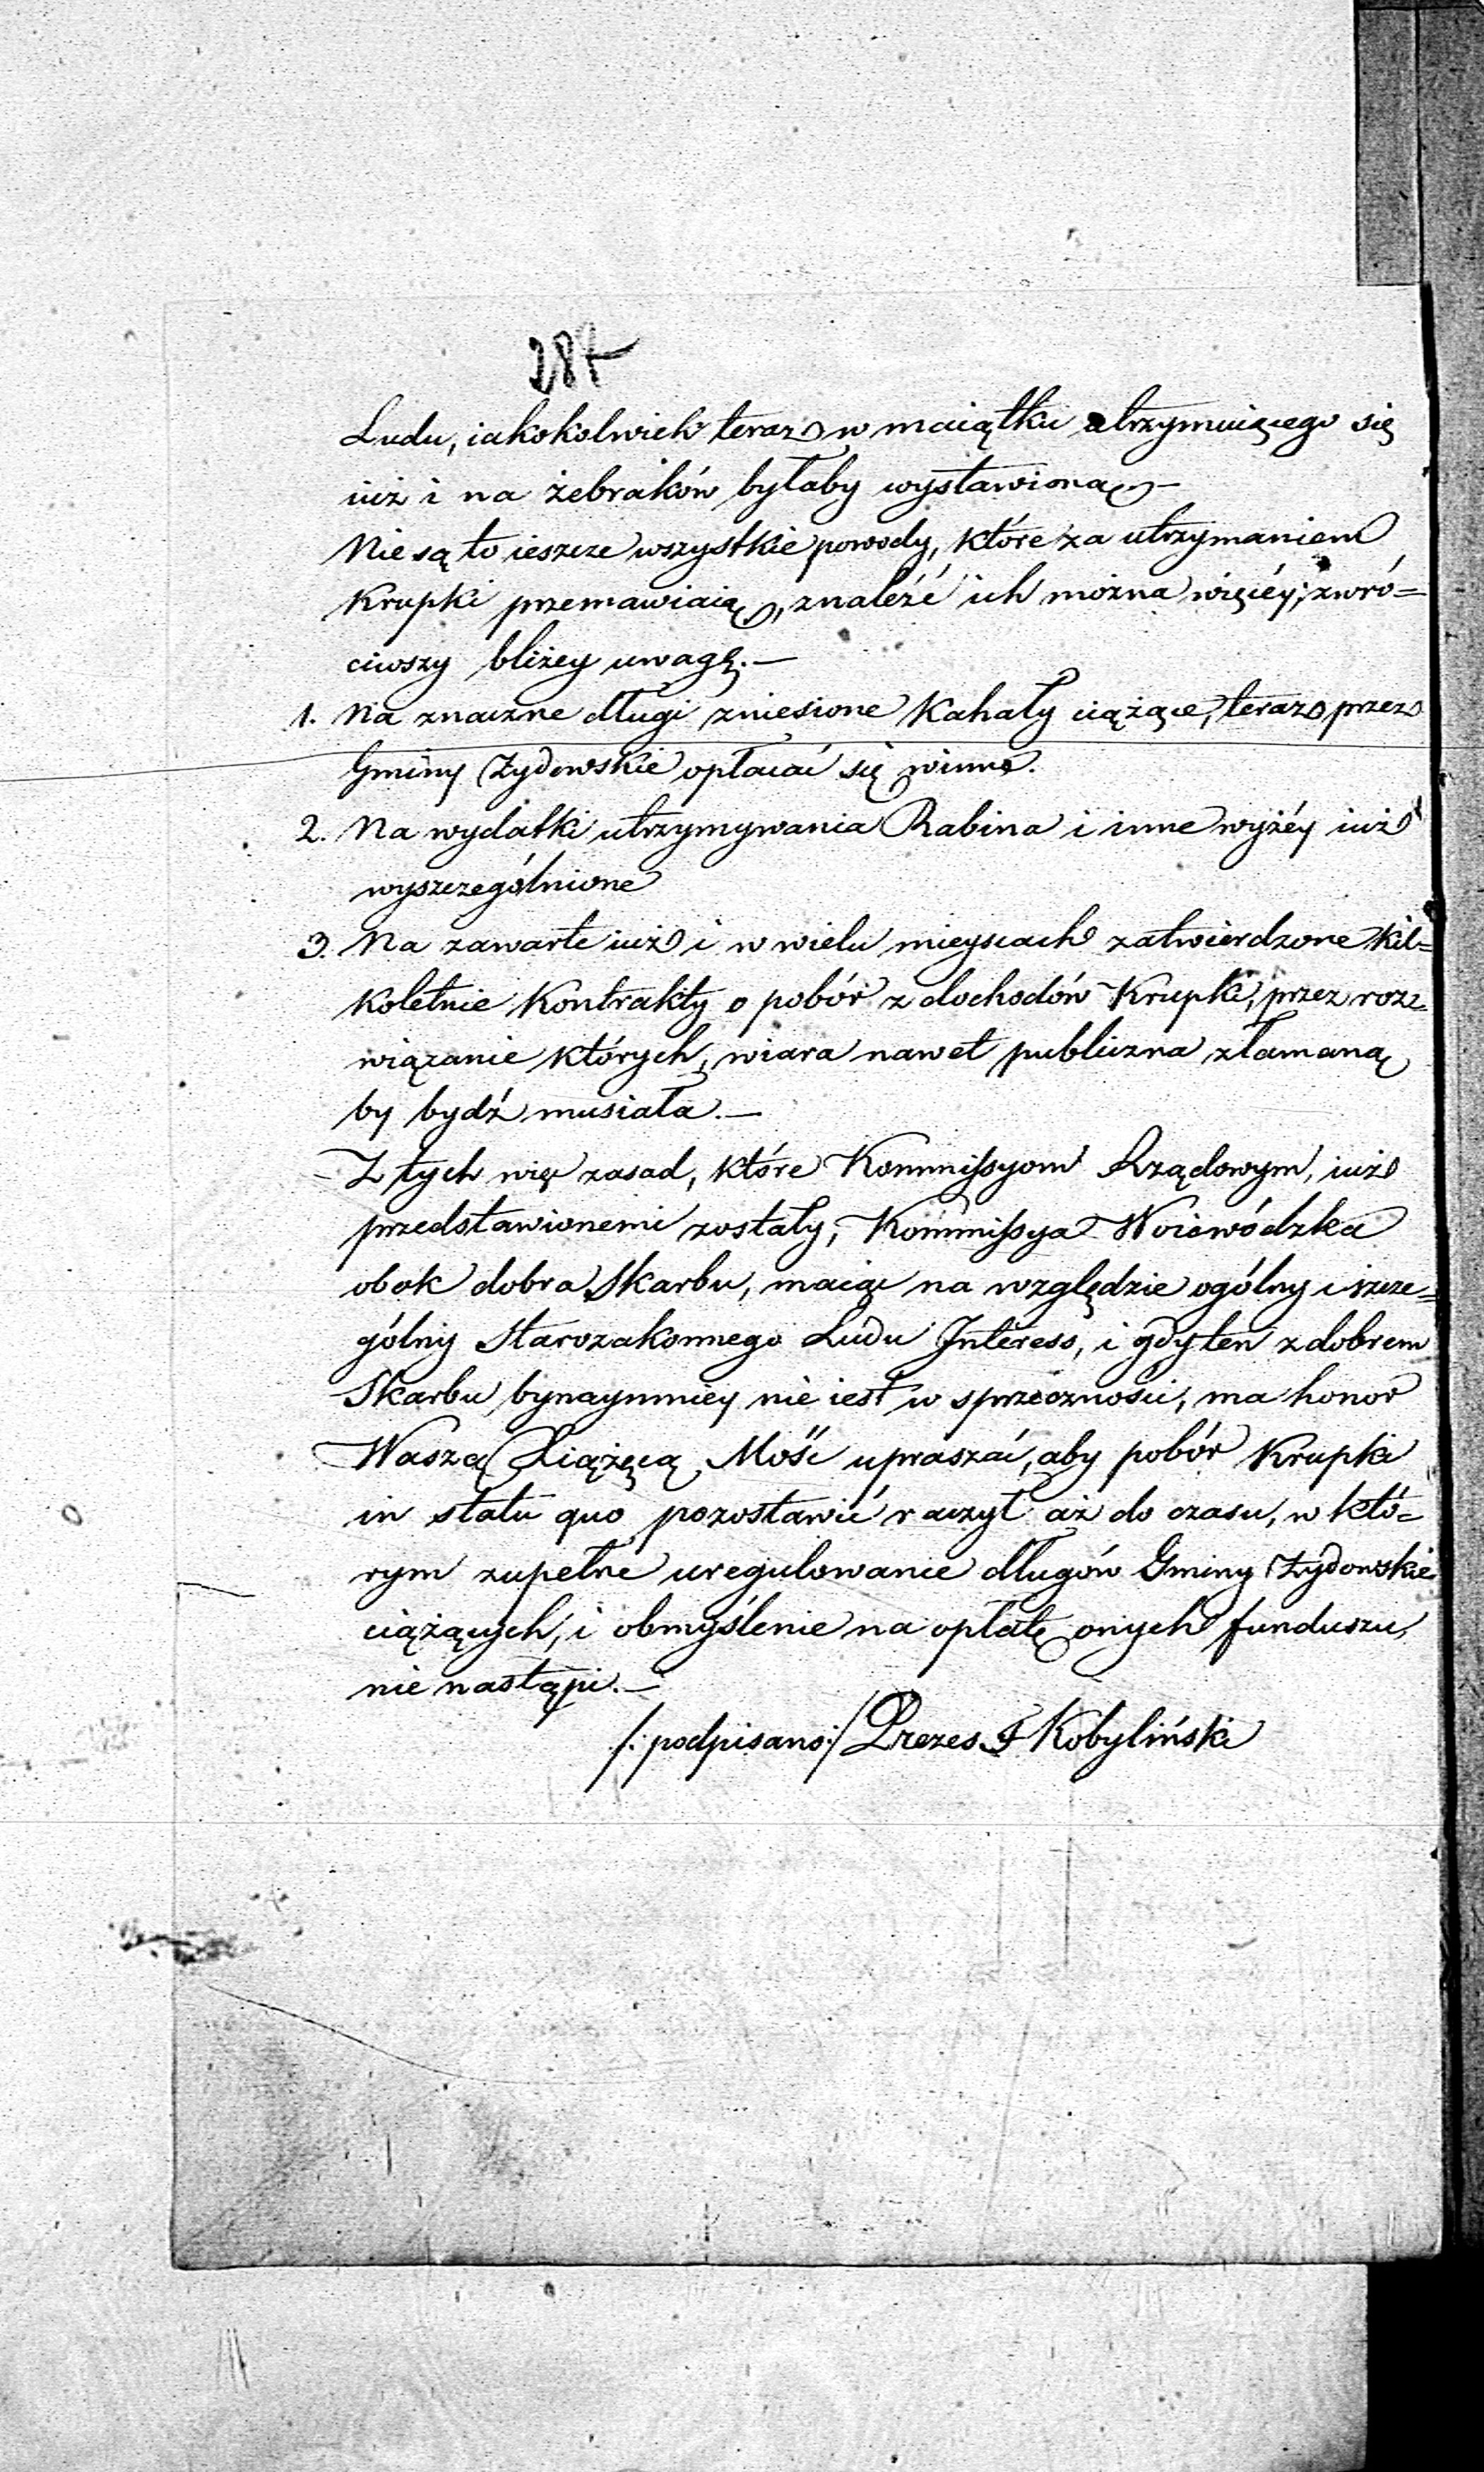 287
Ludu, iakokolwiek teraz w maiątku utrzymuiącego się
iuż i na żebraków byłaby wystawioną.—
Nie są to ieszcze wszystkie powody, które za utrzymaniem
Krupki przemawiaią, znaleźć ich można więcéy, zwró=
ciwszy bliżey uwagę.—
1. Na znaczne długi zniesione Kahały ciążące, teraz przez
Gminy Żydowskie opłacać się winne.
2. Na wydatki utrzymywania Rabina i inne wyżéy iuż
wyszczególnione
3. Na zawarte iuż i w wielu mieyscach zatwierdzone kil=
koletnie Kontrakty o pobór z dochodów Krupki, przez roz=
wiązanie których, wiara nawet publiczna złamaną
by bydź musiała.—
Z tych więc zasad, które Kommissyom Rządowym, iuż
przedstawionemi zostały, Kommissya Woiewódzka
obok dobra Skarbu, maiąc na względzie ogólny i szcze=
gólny Starozakonnego Ludu Interess, i gdy ten z dobrem
Skarbu bynaymniey nie iest w sprzeczności, ma honor
Waszą Xiążęcą Mość upraszać, aby pobór Krupki
in statu quo pozostawić raczył aż do czasu, w któ=
rym zupełne uregulowanie długów Gminy Żydowskie
ciążących, i obmyślenie na opłatę onych funduszu,
nie nastąpi.—
/: podpisano :/ Prezes F Kobyliński